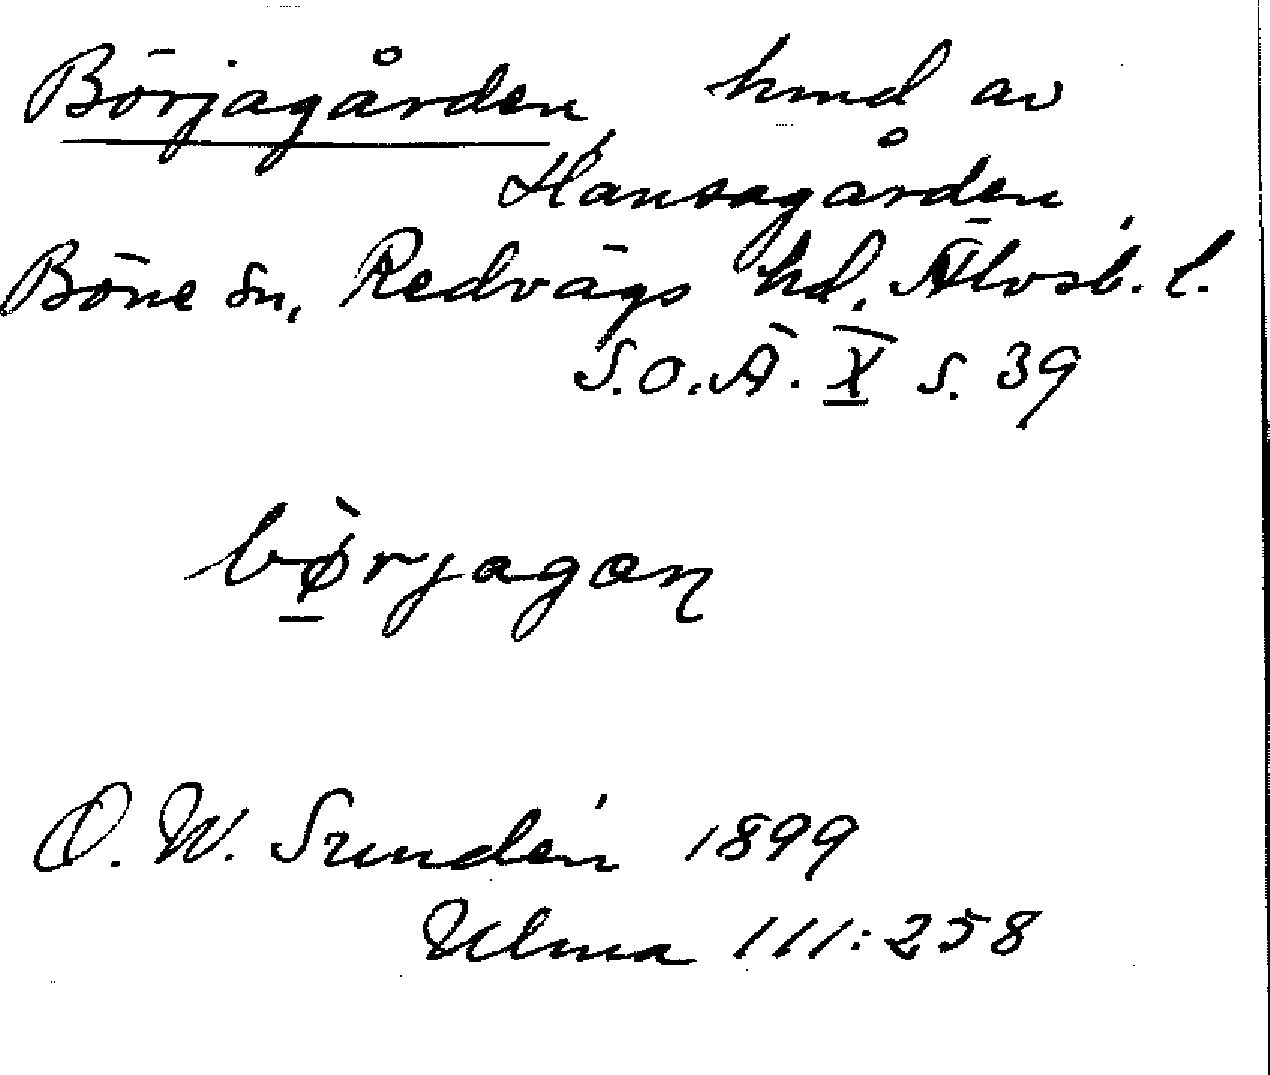 Börjagården hmd av
Hansagården
Böne sn, Redvägs hd, Älvsb. l.
S.O.Ä. X s. 39
bø̀rjagaɳ
O. W. Sundén 1899
Ulma 111:258